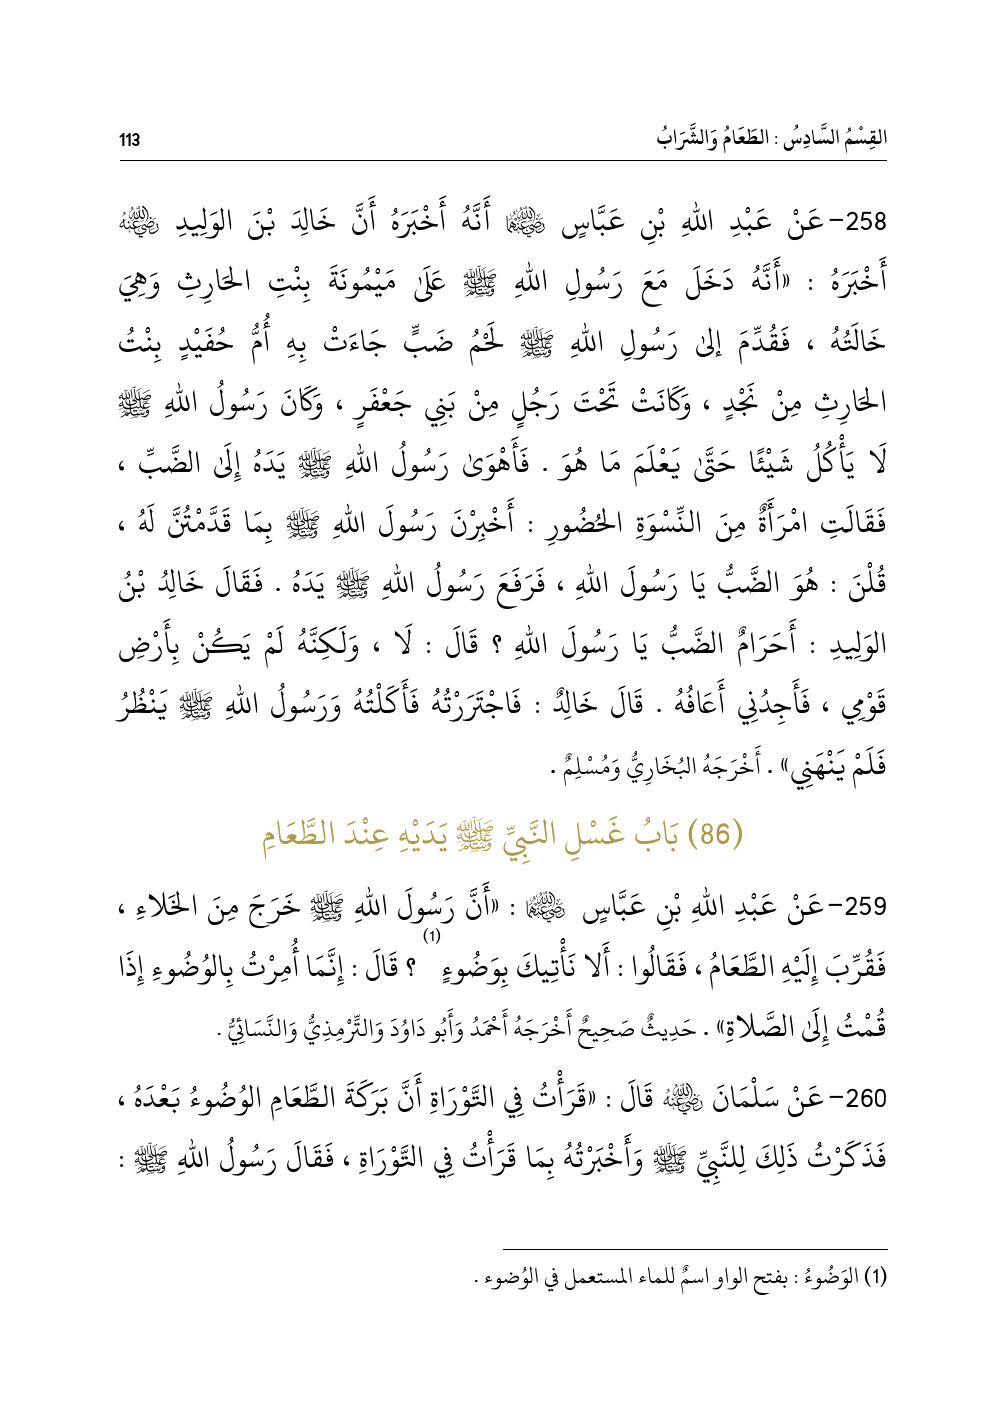 القِسْمُ السَّادِسُ : الطَعَامُ وَالشَّرَابُ 113
258- عَنْ عَبْدِ اللهِ بْنِ عَبَّاسٍ رضي الله عنهما أَنَّهُ أَخْبَرَهُ أَنَّ خَالِدَ بْنَ الوَلِيدِ رضي الله عنه
أَخْبَرَهُ : «أَنَّهُ دَخَلَ مَعَ رَسُولِ اللهِ ﷺ عَلَىٰ مَيْمُونَةَ بِنْتِ الحَارِثِ وَهِيَ
خَالَتُهُ ، فَقُدِّمَ إلىٰ رَسُولِ اللهِ ﷺ لَحْمُ ضَبٍّ جَاءَتْ بِهِ أُمُّ حُفَيْدٍ بِنْتُ
الحَارِثِ مِنْ نَجْدٍ ، وَكَانَتْ تَحْتَ رَجُلٍ مِنْ بَنِي جَعْفَرٍ ، وَكَانَ رَسُولُ اللهِ ﷺ
لَا يَأْكُلُ شَيْئًا حَتَّىٰ يَعْلَمَ مَا هُوَ . فَأَهْوَىٰ رَسُولُ اللهِ ﷺ يَدَهُ إِلَىٰ الضَّبِّ ،
فَقَالَتِ امْرَأَةٌ مِنَ النِّسْوَةِ الحُضُورِ : أَخْبِرْنَ رَسُولَ اللهِ ﷺ بِمَا قَدَّمْتُنَّ لَهُ ،
قُلْنَ : هُوَ الضَّبُّ يَا رَسُولَ اللهِ ، فَرَفَعَ رَسُولُ اللهِ ﷺ يَدَهُ . فَقَالَ خَالِدُ بْنُ
الوَلِيدِ : أَحَرَامٌ الضَّبُّ يَا رَسُولَ اللهِ ؟ قَالَ : لَا ، وَلَكِنَّهُ لَمْ يَكُنْ بِأَرْضِ
قَوْمِي ، فَأَجِدُنِي أَعَافُهُ . قَالَ خَالِدٌ : فَاجْتَرَرْتُهُ فَأَكَلْتُهُ وَرَسُولُ اللهِ ﷺ يَنْظُرُ
فَلَمْ يَنْهَنِي» . أَخْرَجَهُ البُخَارِيُّ وَمُسْلِمٌ .
(86) بَابُ غَسْلِ النَّبِيِّ ﷺ يَدَيْهِ عِنْدَ الطَّعَامِ
259- عَنْ عَبْدِ اللهِ بْنِ عَبَّاسٍ رضي الله عنهما : «أَنَّ رَسُولَ اللهِ ﷺ خَرَجَ مِنَ الخَلاءِ ،
فَقُرِّبَ إِلَيْهِ الطَّعَامُ ، فَقَالُوا : أَلا نَأْتِيكَ بِوَضُوءٍ (1) ؟ قَالَ : إِنَّمَا أُمِرْتُ بِالوُضُوءِ إِذَا
قُمْتُ إِلَىٰ الصَّلاةِ» . حَدِيثٌ صَحِيحٌ أَخْرَجَهُ أَحْمَدُ وَأَبُو دَاوُدَ وَالتِّرْمِذِيُّ وَالنَّسَائِيُّ .
260- عَنْ سَلْمَانَ رضي الله عنه قَالَ : «قَرَأْتُ فِي التَّوْرَاةِ أَنَّ بَرَكَةَ الطَّعَامِ الوُضُوءُ بَعْدَهُ ،
فَذَكَرْتُ ذَلِكَ لِلنَّبِيِّ ﷺ وَأَخْبَرْتُهُ بِمَا قَرَأْتُ فِي التَّوْرَاةِ ، فَقَالَ رَسُولُ اللهِ ﷺ :
(1) الوَضُوءُ : بفتح الواو اسمٌ للماء المستعمل في الوُضوء .